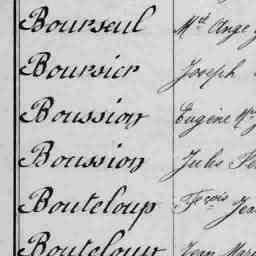 Bourseul Mel Ange
Boursier Joseph
Boussion Eugène
Boussion Jules
Bouteloup Fçois Jean
Bouteloup Jean Marie